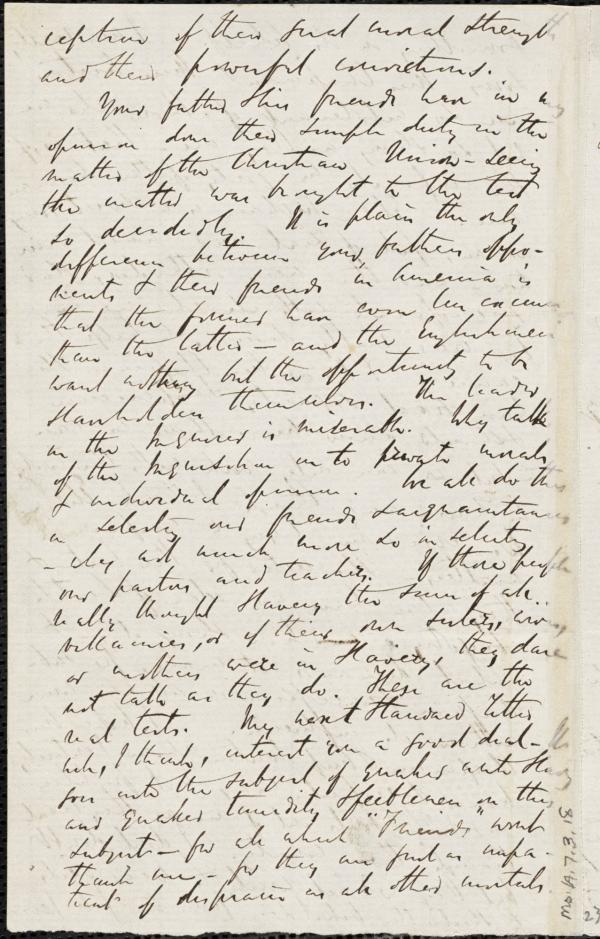 ception of their great moral strength
and their powerful convictions.
Your father & his friends have in my
opinion done their simple duty in the
matter of the Christian Union - seeing
the matter was brought to the test
so decidedly. It is plain the only
difference between your father's oppo-
nents & their friends in America is
that the former have even less excuse
than the latter - and the Englishmen
want nothing but the opportunity to be
slaveholders themselves. The leader
in the Inquirer is miserable. Why talk
of the Inquisition in to private morals
& individual opinion. We all do this
in selecting our friends & acquaintances
- why not much more so in selecting
our pastors and teachers. If those people
really thought Slavery the sum of all
villainies, or if their own sisters, wives,
or mothers were in Slavery, they dare
not talk as they do. These are the
real tests. My next Standard letter
will, I think, interest you a good deal -
goes into the subject of Quaker anti Slavery
and Quaker timidity & feebleness on this
subject - for all which "Friends" wont
thank me - for they are just as impa-
tient of dispraise as all other mortals.
Ms. A. 7. 3. 18